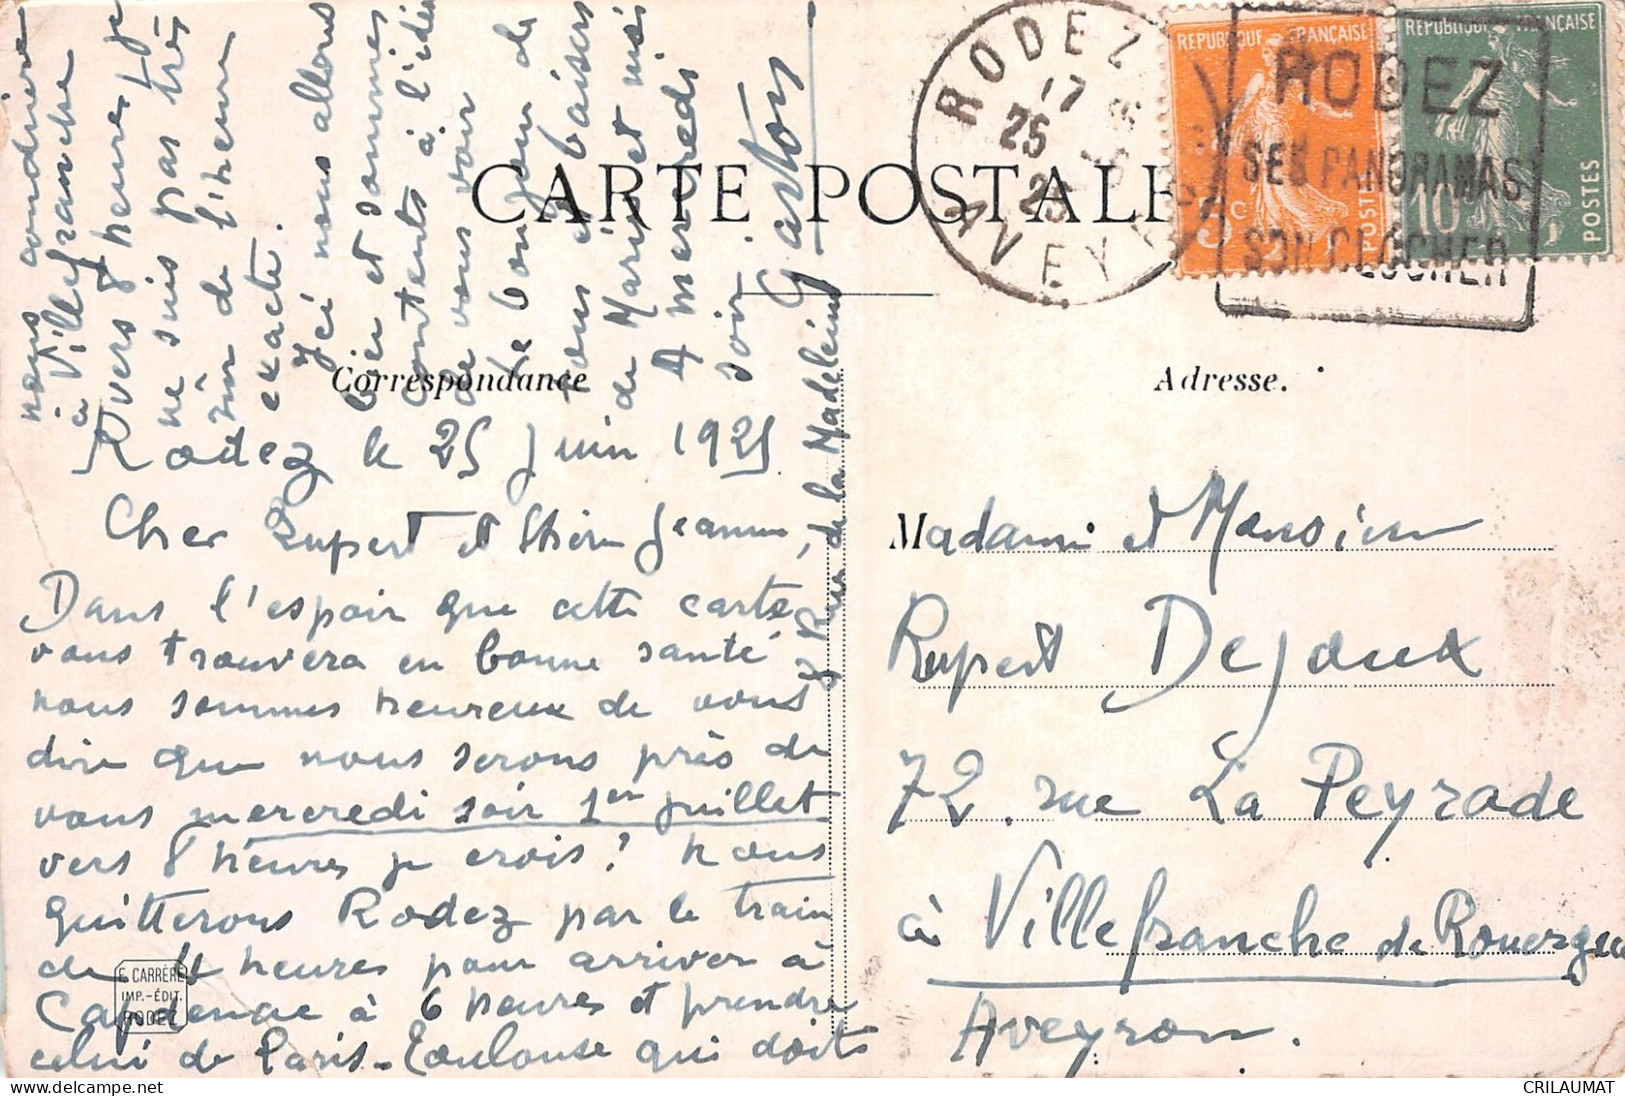 CARTE POSTALE
Correspondance
Adresse.
RODEZ
17
25 - 6
25
AVEYRON
REPUBLIQUE FRANÇAISE
5c
POSTES
REPUBLIQUE FRANÇAISE
10
POSTES
RODEZ
SES PANORAMAS
SON CLOCHER
Rodez le 25 Juin 1925
Cher Rupert et Chère Jeanne,
Dans l'espoir que cette carte
vous trouvera en bonne santé
nous sommes heureux de vous
dire que nous serons près de
vous mercredi soir 1er juillet
vers 8 heures je crois? Nous
quitterons Rodez par le train
de 4 heures pour arriver à
Capdenac à 6 heures et prendre
celui de Paris-Toulouse qui doit
nous conduire
à Villefranche
vers 8 heures je
ne suis pas très
sûr de l'heure
exacte.
Ici nous allons
bien et sommes
contents à l'idée
de vous voir
Le bonjour de
tous et baisers
de Marie et moi
A mercredi
soir.
Gaston
8 Rue de la Madeleine
Madame et Monsieur
Rupert Dejoux
72. rue La Peyrade
à Villefranche de Rouergue
Aveyron.
E. CARRÈRE
IMP.-ÉDIT.
RODEZ
CRILAUMAT